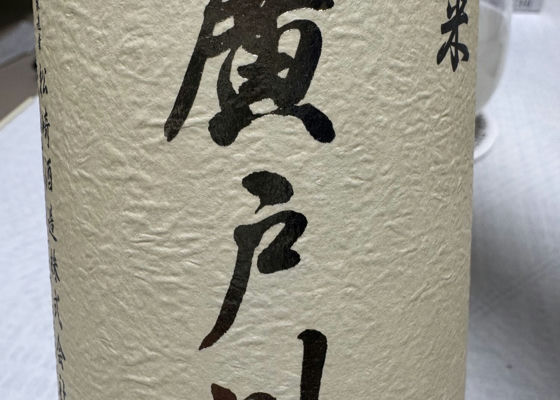 米
廣戸川
松崎酒造株式会社